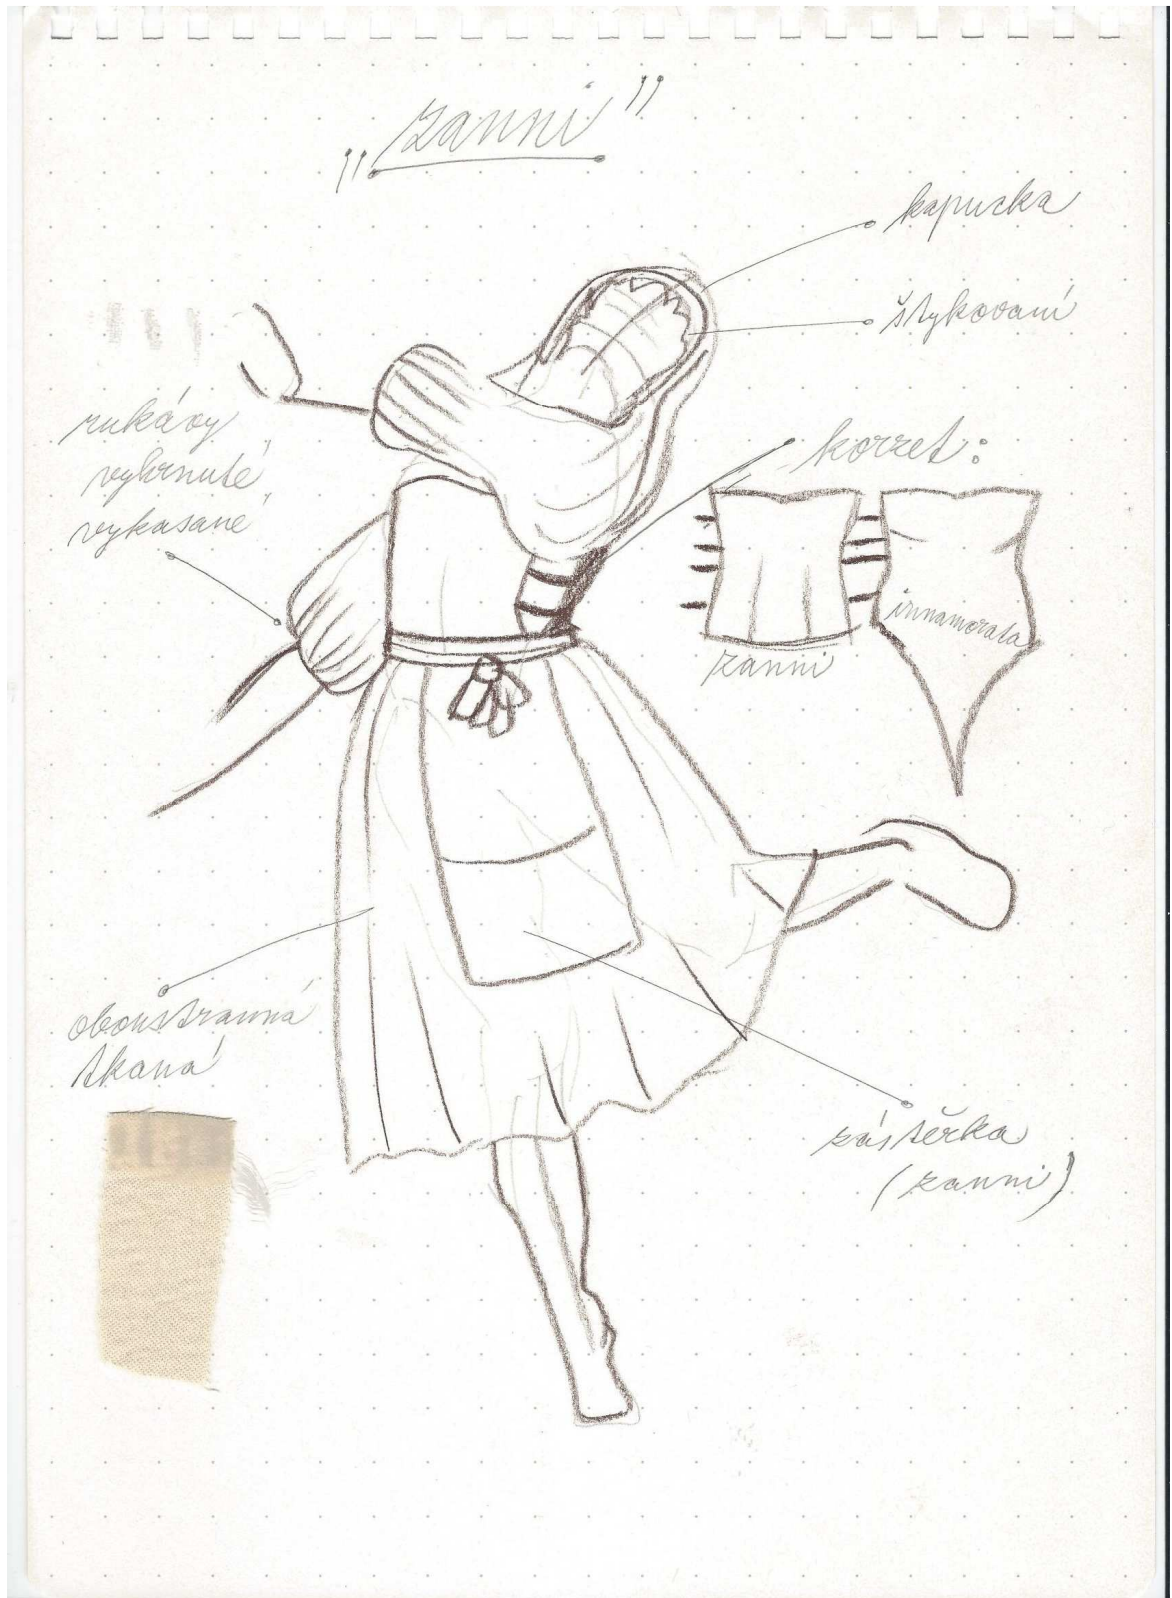 „zanni”
kapucka
štykovaní
rukávy
vyhrnuté
vykasané
korzet:
zanni
innamorata
oboustranná
tkaná
zástěrka
(zanni)